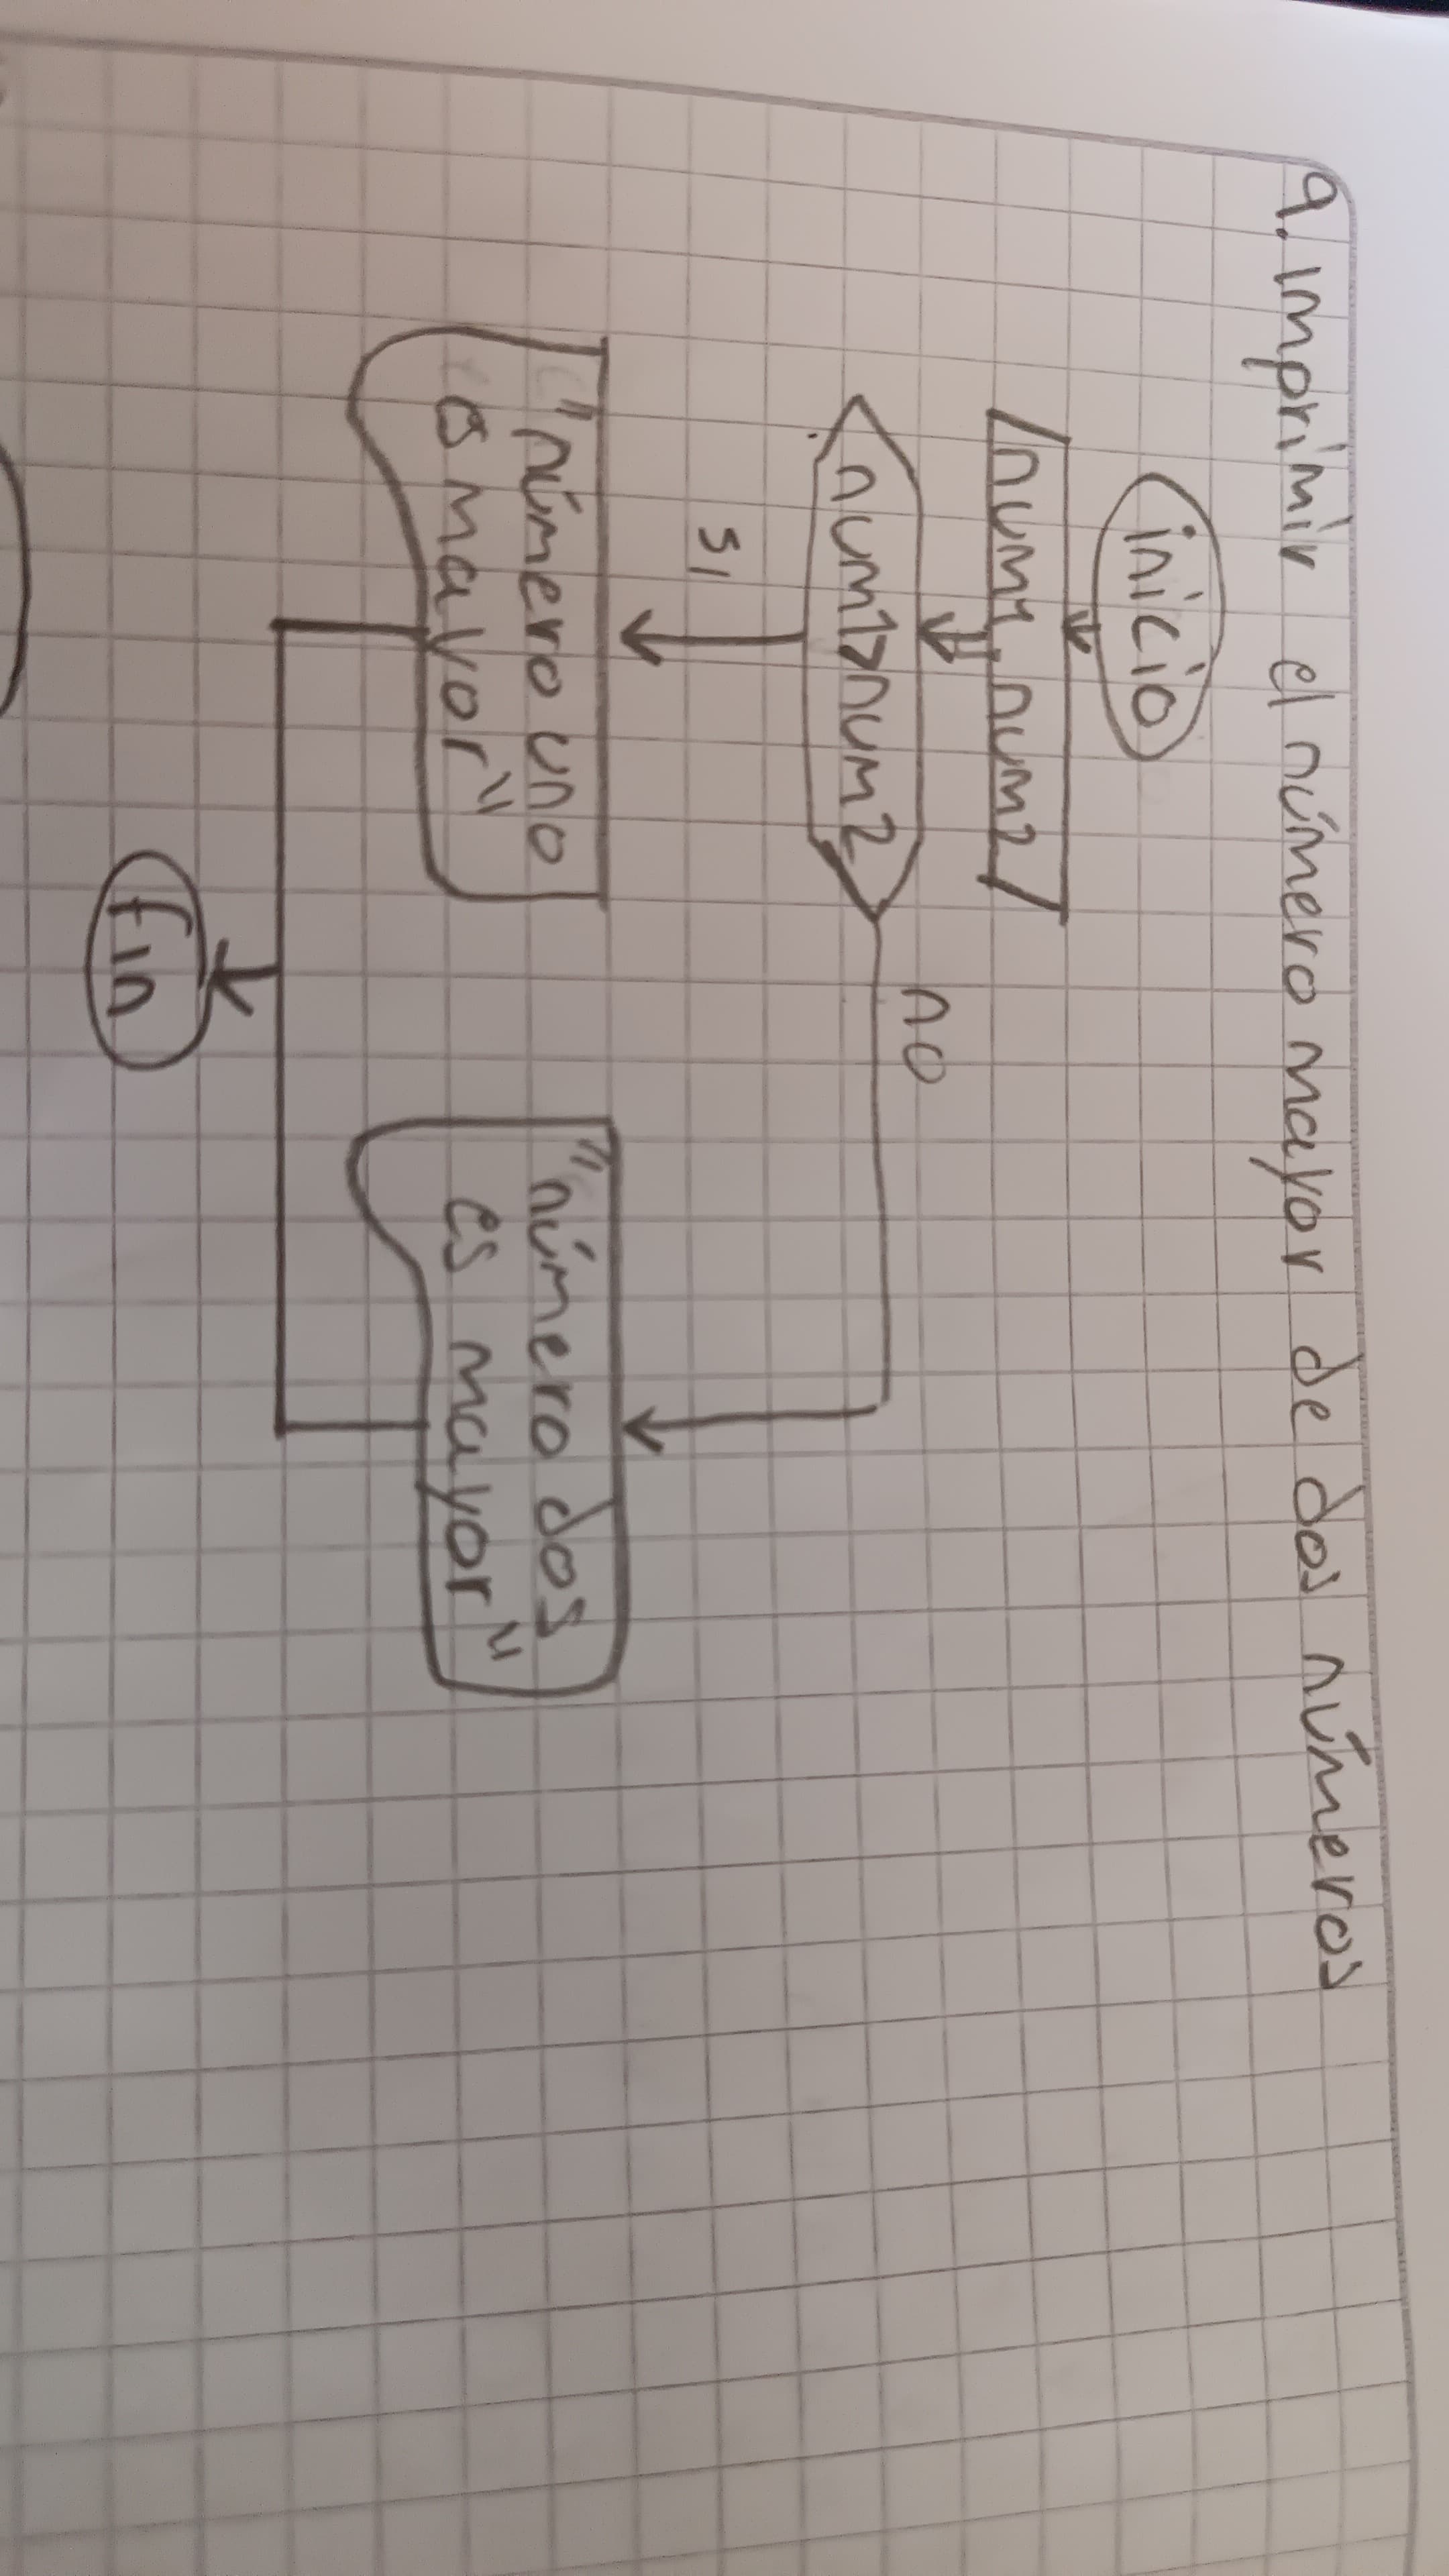 9. Imprimir el número mayor de dos números
inicio
num1, num2
num1>num2
no
si
"número uno
es mayor"
"número dos
es mayor"
fin